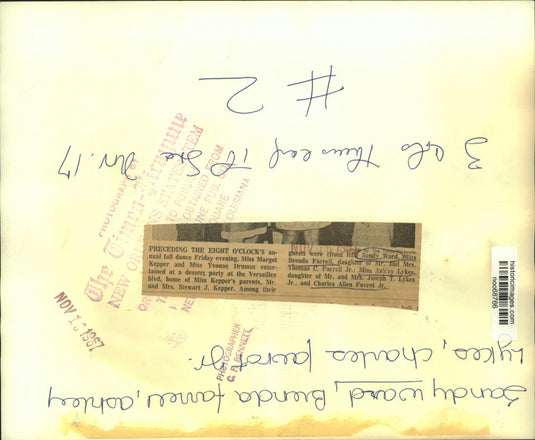 # 2
3 cols Thurs eve
Nov. 17
PHOTOGRAPH BY
The Times-Picayune
NEW ORLEANS STATES ITEM
TO PUBLISH
OBTAINED FROM
PUB.
SQUARE
LOUISIANA
NOV 13 1967
NOV
PHOTOGRAPHER
BENNETT
PRECEDING THE EIGHT O'CLOCK'S an-
nual fall dance Friday evening, Miss Margot
Kepper and Miss Yvonne Drumm enter-
tained at a dessert party at the Versailles
blvd. home of Miss Kepper's parents, Mr.
and Mrs. Stewart J. Kepper. Among their
guests were (from left) Sandy Ward, Miss
Brenda Farrell, daughter of Mr. and Mrs.
Thomas C. Farrell Jr.; Miss Ashley Lykes,
daughter of Mr. and Mrs. Joseph T. Lykes
Jr., and Charles Allen Favrot Jr.
historicimages.com
Sandy Ward, Brenda Farrell, Ashley
Lykes, Charles Favrot Jr.